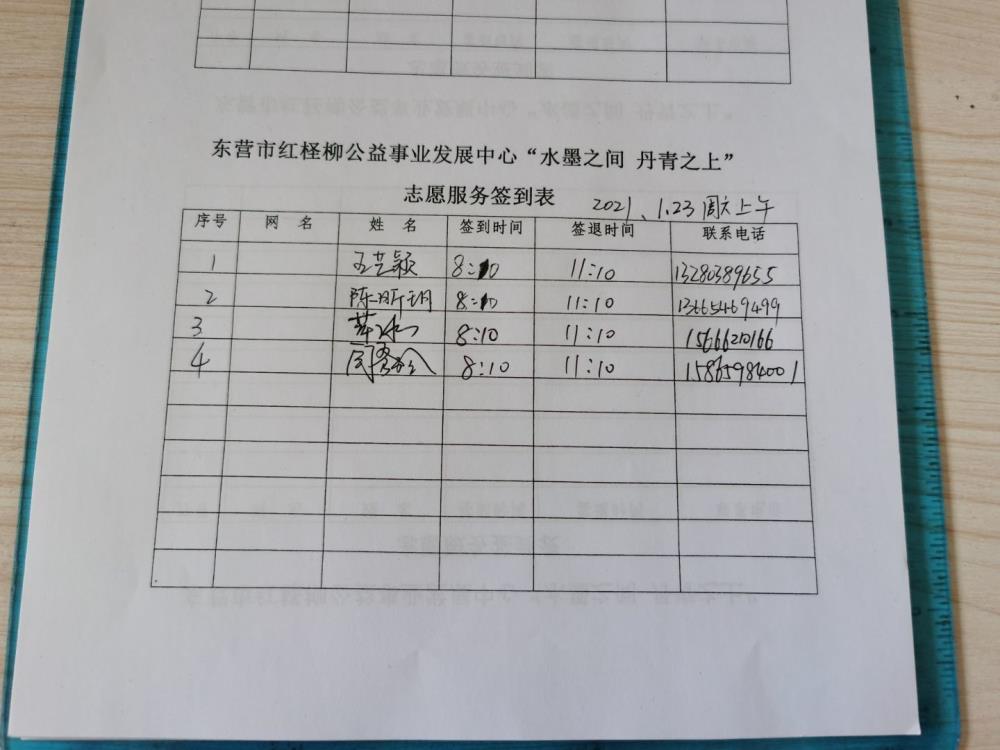 东营市红柽柳公益事业发展中心“水墨之间 丹青之上”
志愿服务签到表 2021、1.23 周六上午
序号 网 名 姓 名 签到时间 签退时间 联系电话
1 王艺颖 8:10 11:10 13280389655
2 陈昕玥 8:10 11:10 13665469499
3 8:10 11:10 15666210166
4 8:10 11:10 15865984001